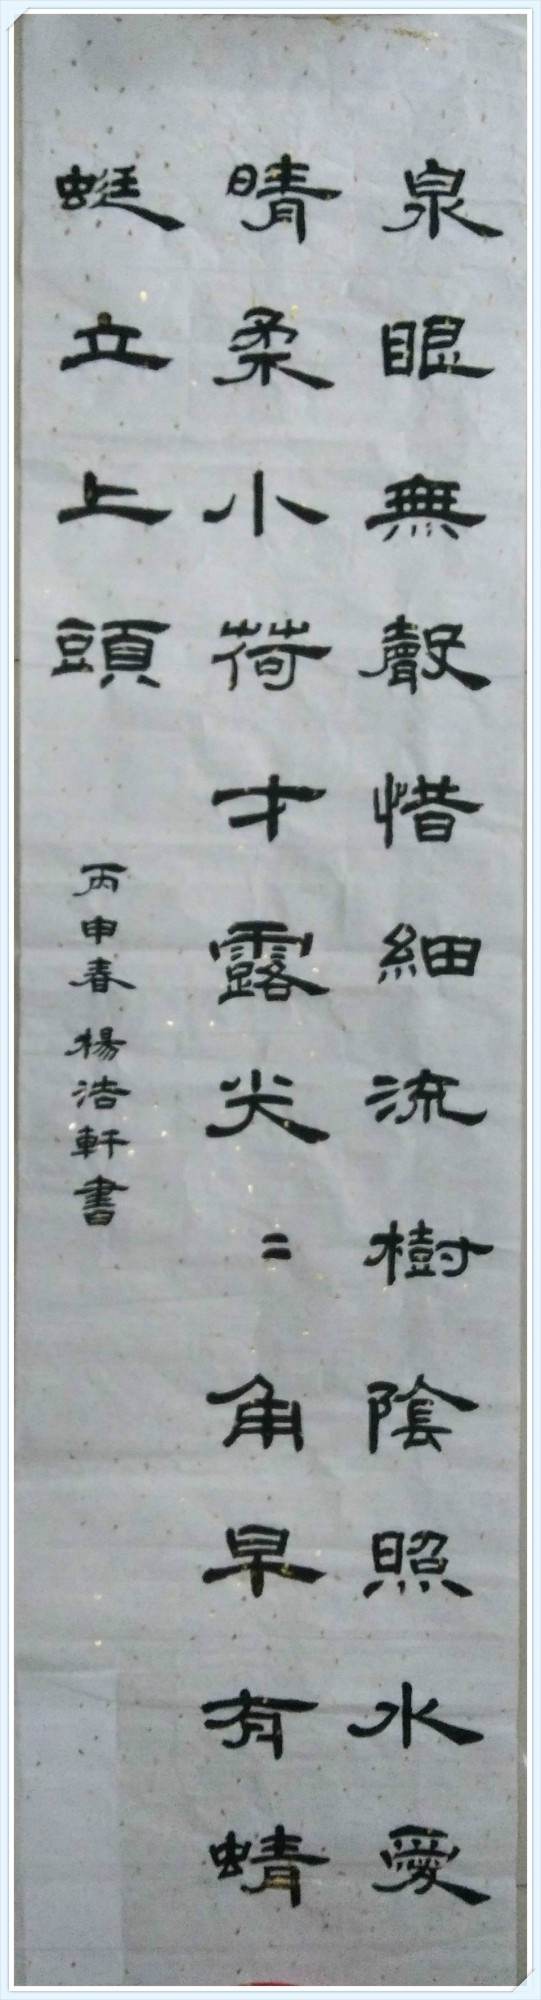 泉眼無聲惜細流樹陰照水愛
晴柔小荷才露尖〻角早有蜻
蜓立上頭
丙申春楊浩軒書